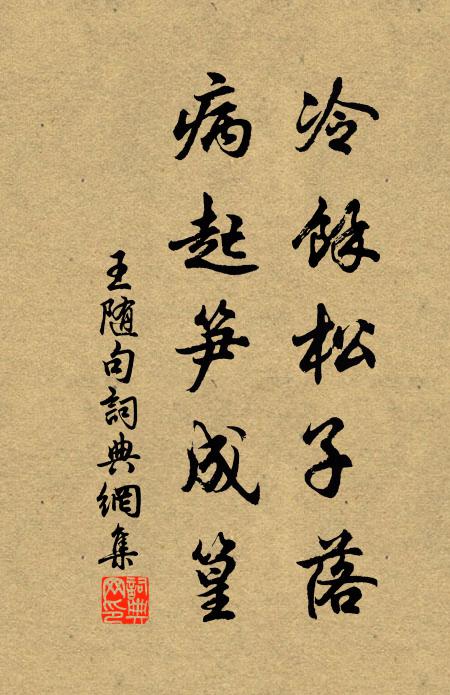 冷餘松子落
病起笋成篁
王随句詞典網集
詞典网印